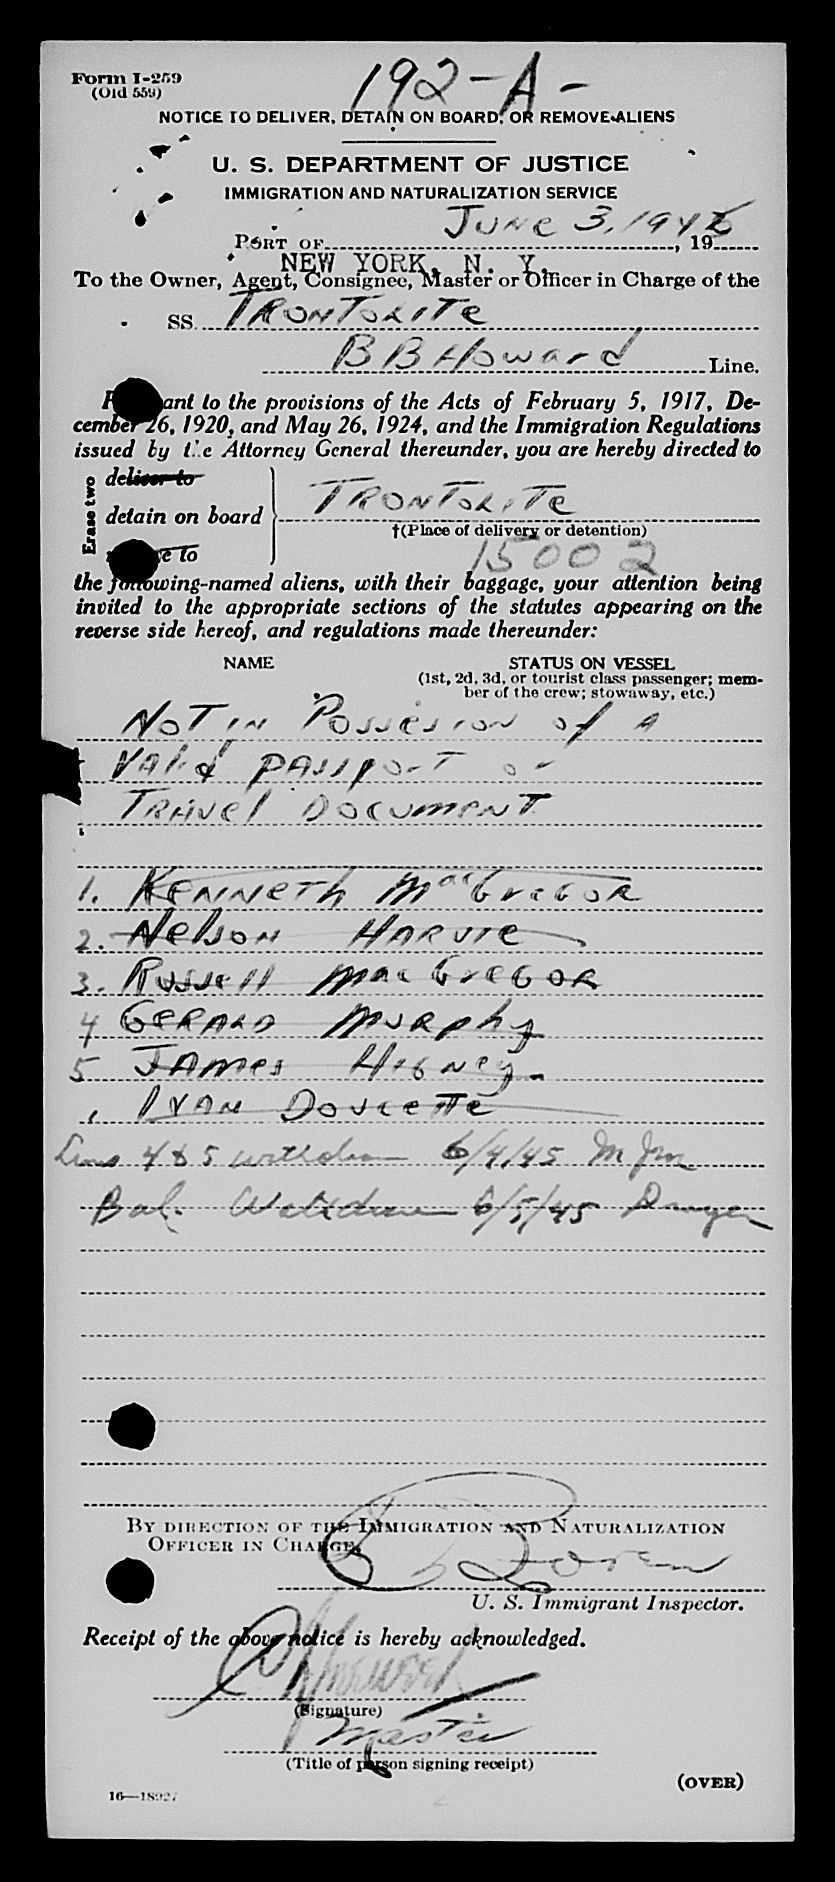 Form I-259
(Old 559)
192-A-
NOTICE TO DELIVER, DETAIN ON BOARD, OR REMOVE ALIENS
U. S. DEPARTMENT OF JUSTICE
IMMIGRATION AND NATURALIZATION SERVICE
June 3, 1945
PORT OF , 19
NEW YORK, N. Y.
To the Owner, Agent, Consignee, Master or Officer in Charge of the
SS. TRONTOLITE
BB Howard Line.
ant to the provisions of the Acts of February 5, 1917, De-
cember 26, 1920, and May 26, 1924, and the Immigration Regulations
issued by the Attorney General thereunder, you are hereby directed to
Erase two
deliver to
detain on board
TRONTOLITE
†(Place of delivery or detention)
e to
15002
the following-named aliens, with their baggage, your attention being
invited to the appropriate sections of the statutes appearing on the
reverse side hereof, and regulations made thereunder:
NAME STATUS ON VESSEL
(1st, 2d, 3d, or tourist class passenger; mem-
ber of the crew; stowaway, etc.)
Not in Possesion of a
Valid passport or
Travel Document
1. Kenneth MacGregor
2. Nelson Harvie
3. Russell MacGregor
4 Gerald Murphy
5 James Higney
Ivan Doucette
Lines 4 & 5 withdrawn 6/4/45
Bal. Withdrawn 6/5/45 Dwyer
BY DIRECTION OF THE IMMIGRATION AND NATURALIZATION
OFFICER IN CHARGE.
U. S. Immigrant Inspector.
Receipt of the above notice is hereby acknowledged.
(Signature)
Master
(Title of person signing receipt)
(OVER)
16—18927